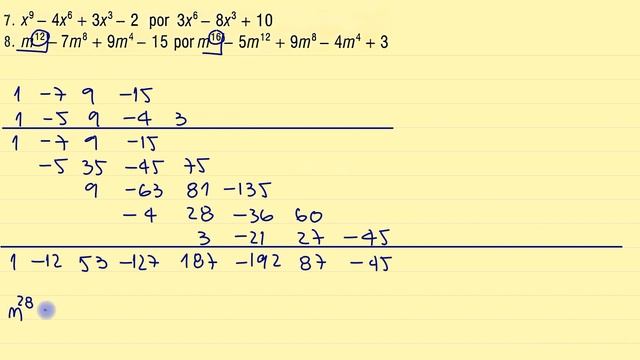 7. x⁹ – 4x⁶ + 3x³ – 2 por 3x⁶ – 8x³ + 10
8. m¹² – 7m⁸ + 9m⁴ – 15 por m¹⁶ – 5m¹² + 9m⁸ – 4m⁴ + 3
1 -7 9 -15
1 -5 9 -4 3
1 -7 9 -15
-5 35 -45 75
9 -63 81 -135
-4 28 -36 60
3 -21 27 -45
1 -12 53 -127 187 -192 87 -45
m²⁸